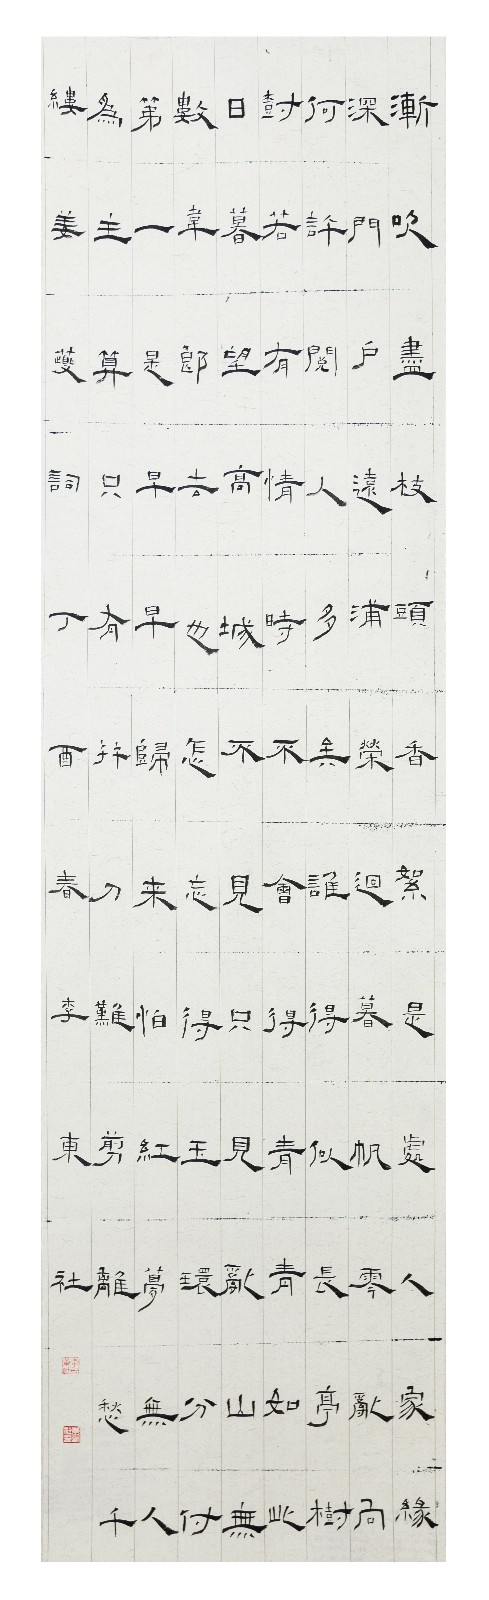 漸吹盡枝頭香絮是處人家綠
深門戶遠浦榮迴暮帆零亂向
何許閱人多矣誰得似長亭樹
尌若有情時不會得青青如此
日暮望高城不見只見亂山無
數韋郎去也怎忘得玉環分付
第一是早早歸来怕紅萼無人
為主算只有并刀難剪離愁千
縷姜夔詞丁酉春李東社